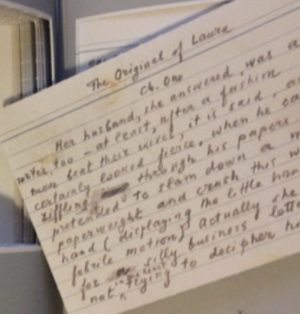 The Original of Laura
Ch. One
Her husband, she answered, was a
writer, too — at least, after a fashion.
men beat their wives, it is said, a
certainly looked fierce, when he ca
riffling through his papers
pretended to slam down a
paperweight and crush this w
hand (displaying the little han
febrile motion) Actually she
for a silly business lette
not trying to decipher he